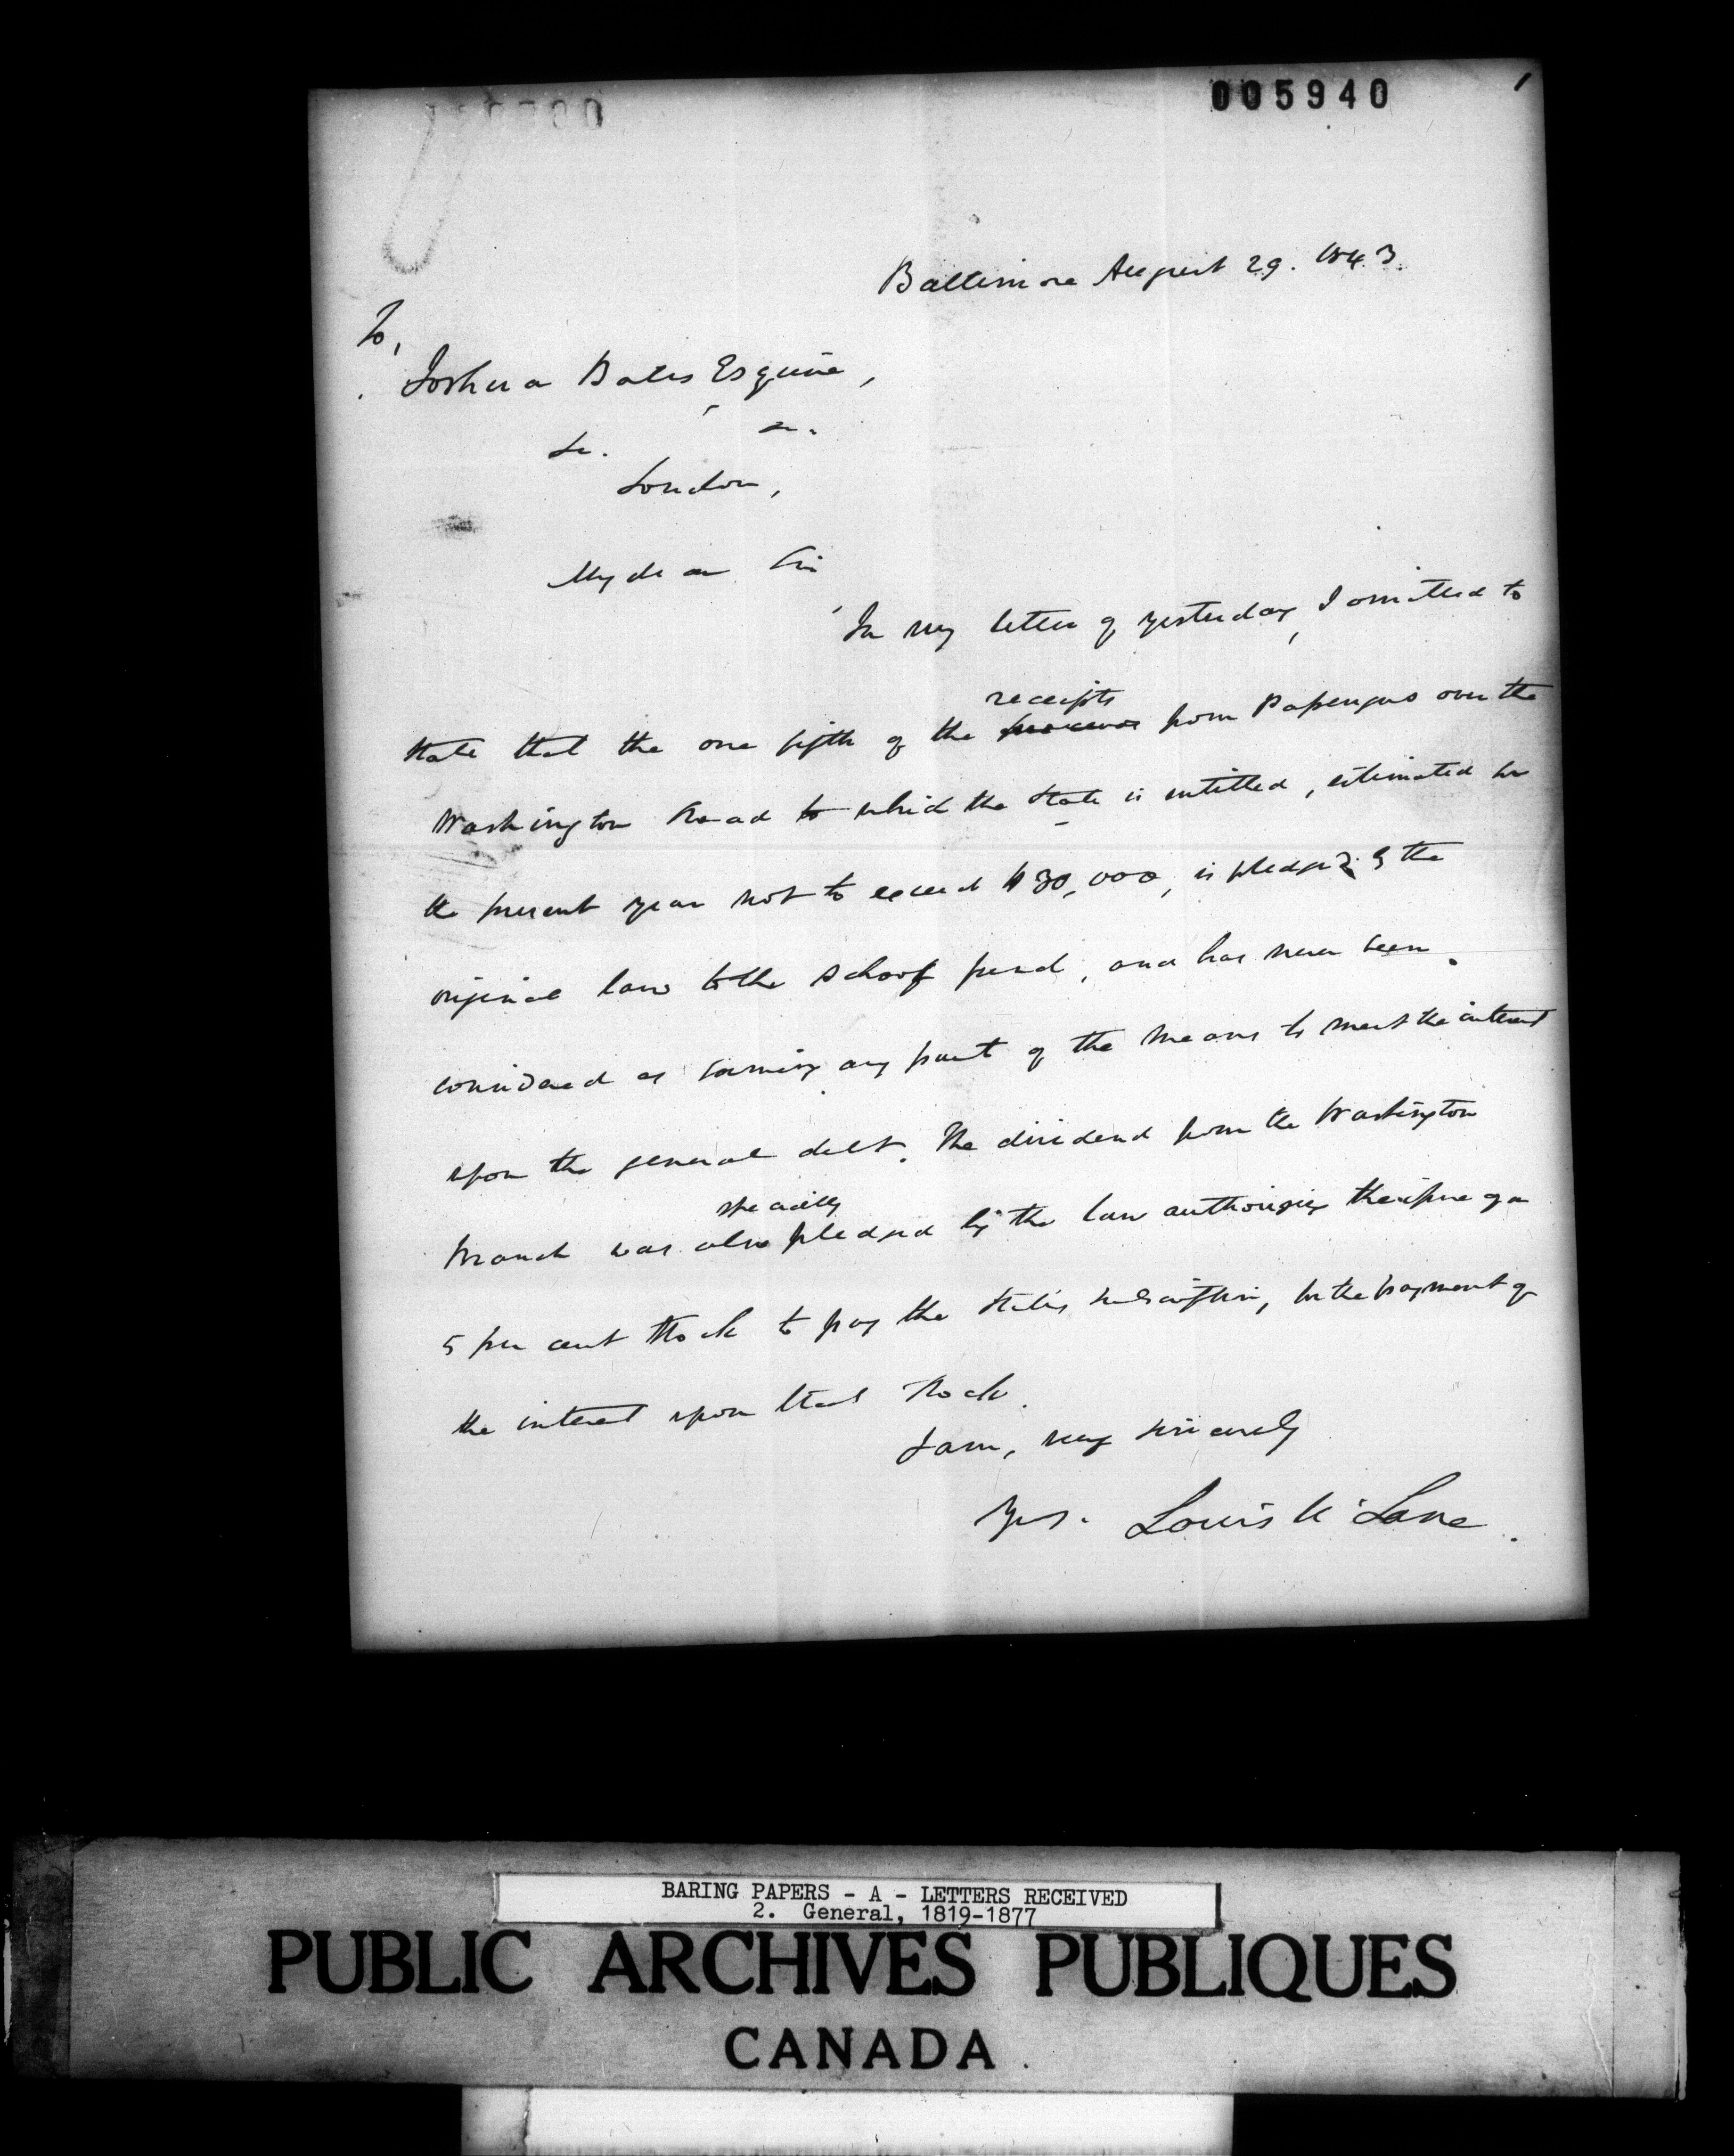 005940
Baltimore August 29. 1843.
To,
Joshua Bates Esquire,
&c. &c.
London,
My dear Sir
In my letter of yesterday, I omitted to
receipts
state that the one fifth of the from Passengers over the
Washington Road to which the State is entitled, estimated for
the present year not to exceed $30,000, is pledged by the
original law to the School fund, and has never been
considered as forming any part of the means to meet the interest
upon the general debt. The dividend from the Washington
specially
branch was also pledged by the law authorizing the issue of a
5 per cent Stock to pay the State's subscription, for the payment of
the interest upon that Stock.
I am, very sincerely
Yrs. Louis McLane.
BARING PAPERS - A - LETTERS RECEIVED
2. General, 1819-1877
PUBLIC ARCHIVES PUBLIQUES
CANADA